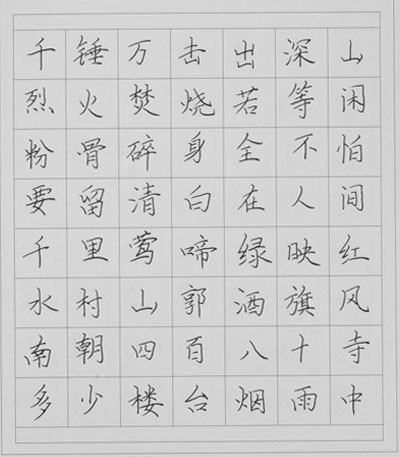 千锤万击出深山
烈火焚烧若等闲
粉骨碎身全不怕
要留清白在人间
千里莺啼绿映红
水村山郭酒旗风
南朝四百八十寺
多少楼台烟雨中